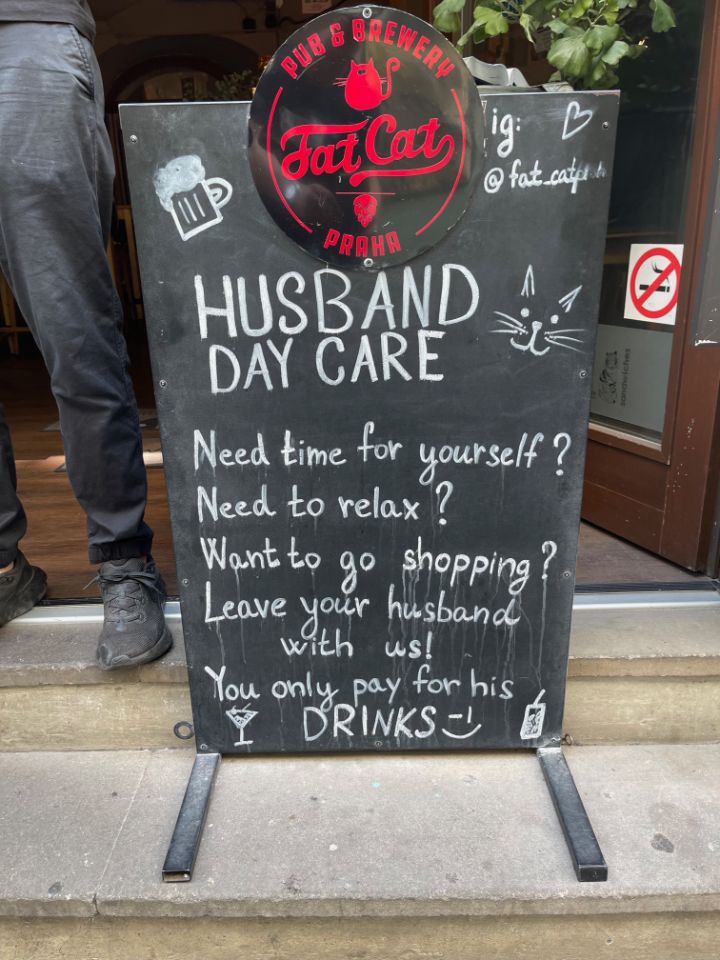 PUB & BREWERY
Fat Cat
PRAHA
ig:
@fat_catpraha
HUSBAND
DAY CARE
Need time for yourself?
Need to relax?
Want to go shopping?
Leave your husband
with us!
You only pay for his
DRINKS
sandwiches